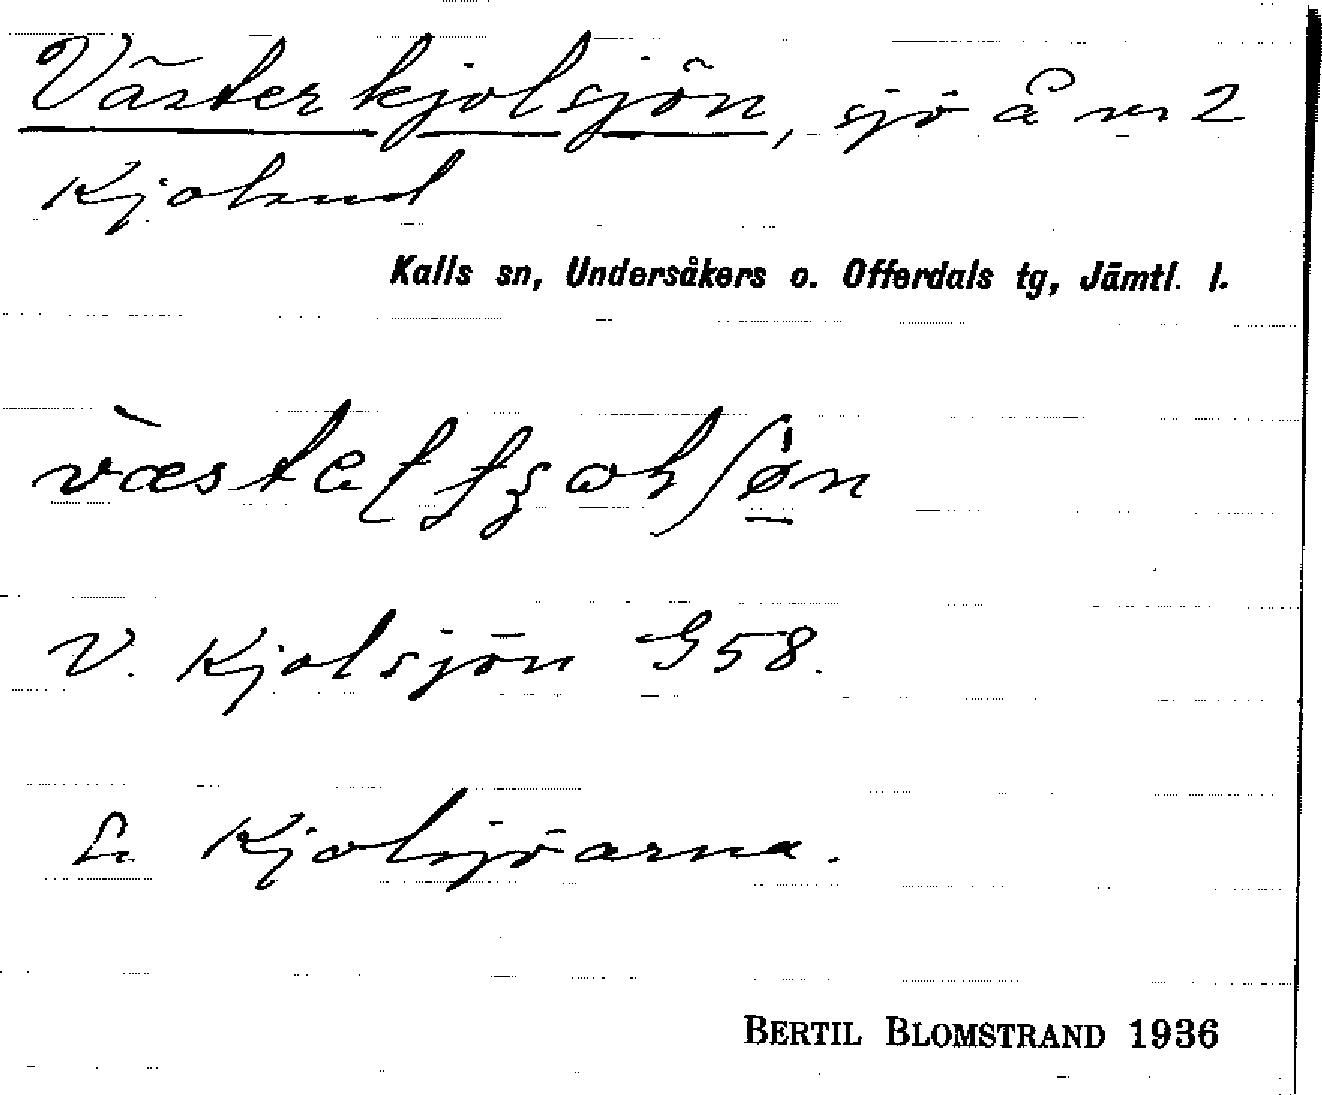 Västerkjolsjön, sjö å nr 2
Kjolsud
Kalls sn, Undersåkers o. Offerdals tg, Jämtl. l.
V. Kjolsjön G58.
Kjolsjöarna.
BERTIL BLOMSTRAND 1936